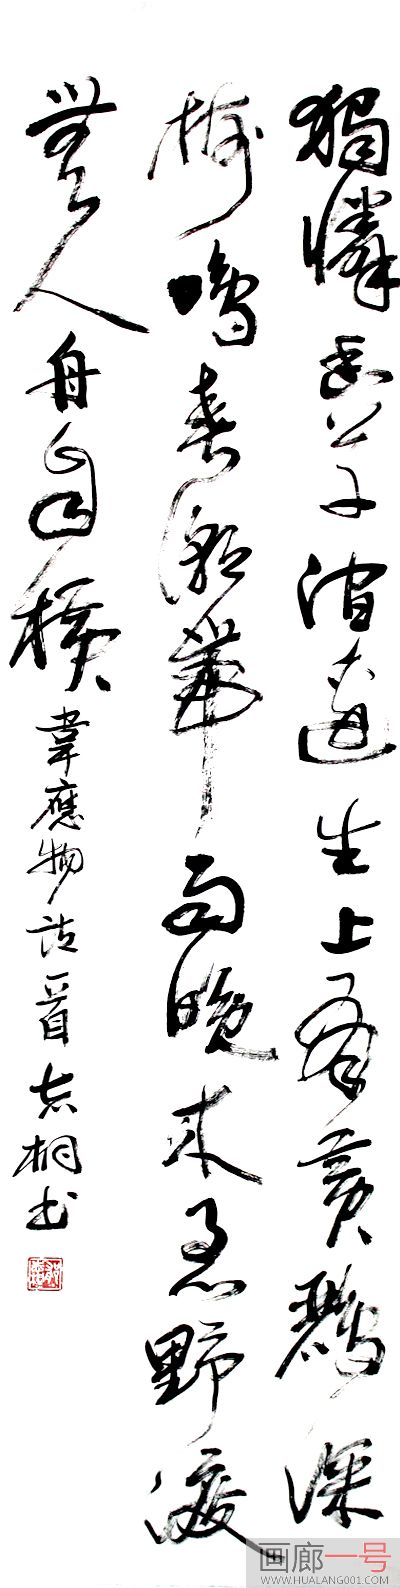 獨憐幽草澗邊生上有黃鸝深
樹鳴春潮帶雨晚來急野渡
無人舟自橫 韋應物詩一首 志桐书
画廊一号
WWW.HUALANG001.COM